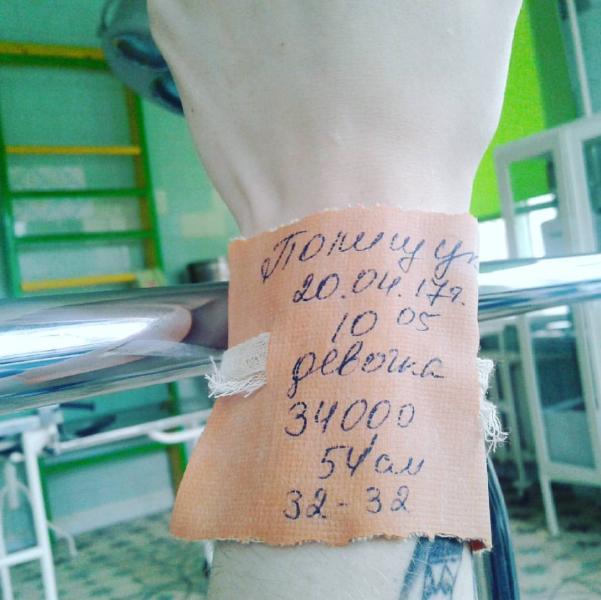 Полищук
20.04.17г.
10 05
девочка
34000
54 см
32-32